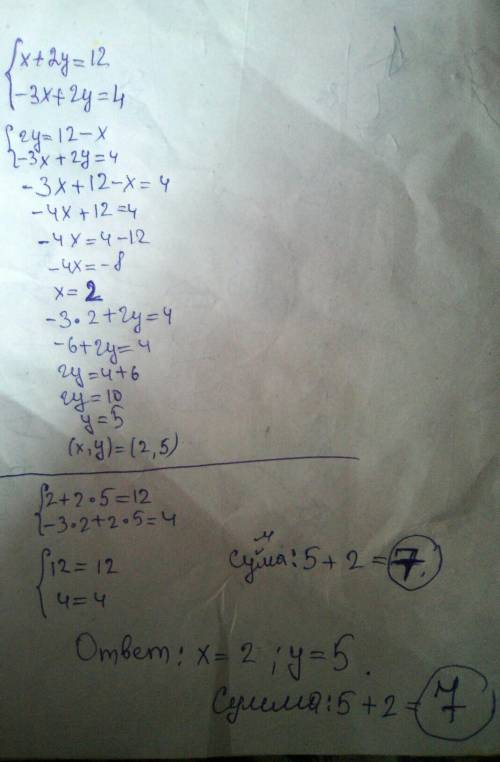 x+2y=12
-3x+2y=4
2y=12-x
-3x+2y=4
-3x+12-x=4
-4x+12=4
-4x=4-12
-4x=-8
x=2
-3·2+2y=4
-6+2y=4
2y=4+6
2y=10
y=5
(x,y)=(2,5)
2+2·5=12
-3·2+2·5=4
12=12
4=4
м
Сума: 5+2=7.
Ответ: x=2; y=5.
Сумма: 5+2=7